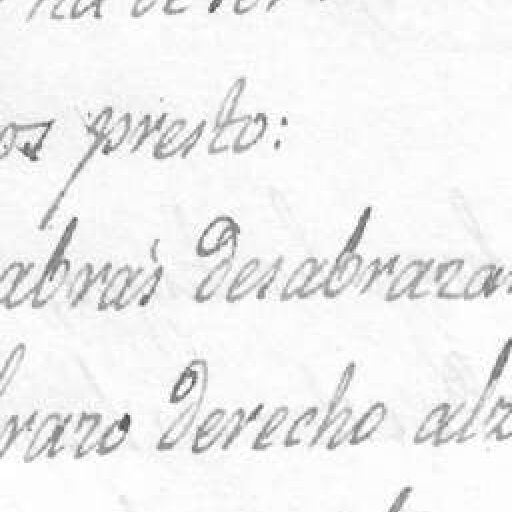 os presto:
abrás desabraza
brazo derecho alz